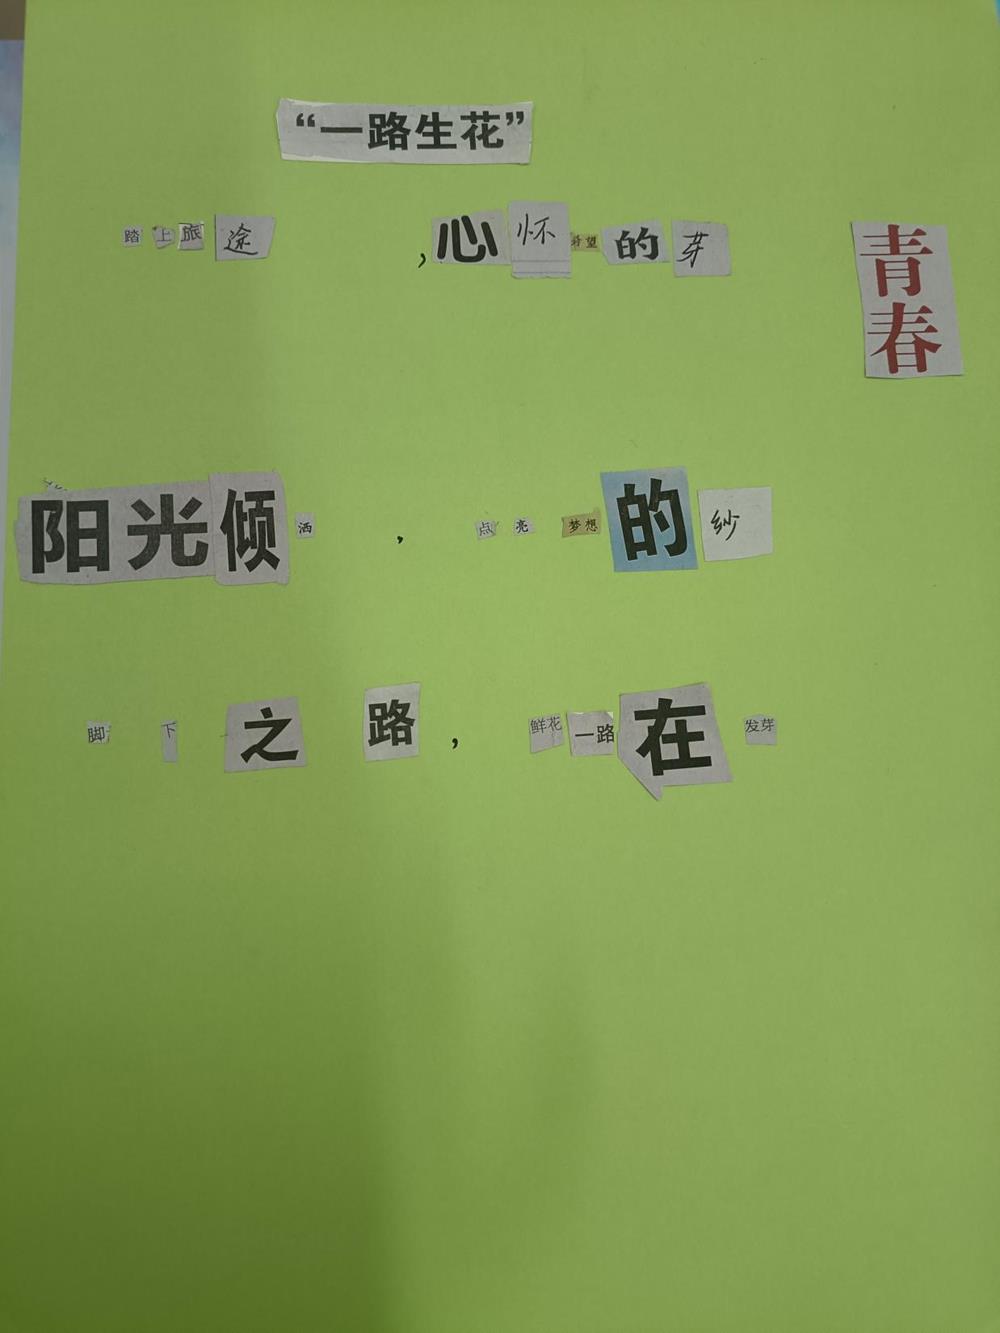 “一路生花”
踏上旅途,心怀希望的芽
青春
阳光倾洒,点亮梦想的纱
脚下之路,鲜花一路在发芽